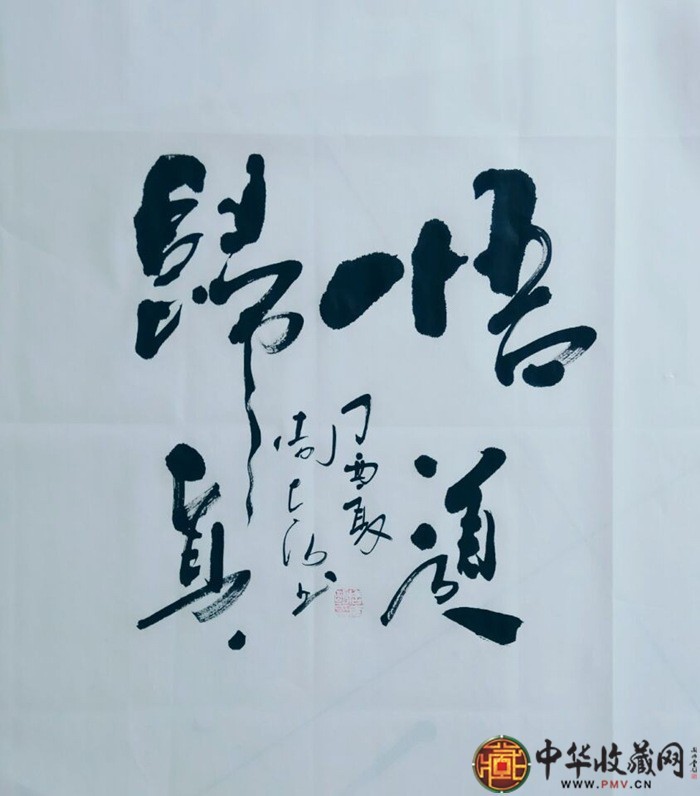 悟道
歸真
丁酉夏
周士沛书
中华收藏网
WWW.PMV.CN